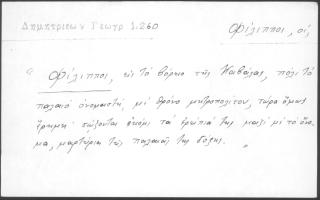 Δημητριέων Γεωγρ 1.260
Φίλιπποι, οἱ,
" Φίλιπποι, εἰς τὸ βόρειο τῆς Καβάλας, πόλι τὸ
παλαιὸ ὀνομαστὴ, μὲ θρόνο μητροπολίτου, τώρα ὅμως
ἔρημη· σώζονται ἀκόμι τὰ ἐρείπιά της μαζὶ μὲ τὸ ὄνο-
μα, μαρτύρια τῆς παλαιᾶς της δόξης. "